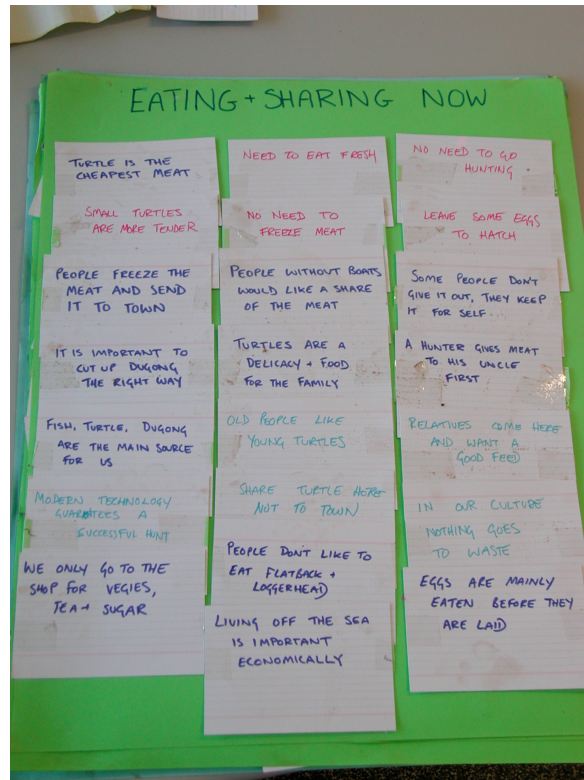 EATING + SHARING NOW
TURTLE IS THE
CHEAPEST MEAT
SMALL TURTLES
ARE MORE TENDER
PEOPLE FREEZE THE
MEAT AND SEND
IT TO TOWN
IT IS IMPORTANT TO
CUT UP DUGONG
THE RIGHT WAY
FISH, TURTLE, DUGONG
ARE THE MAIN SOURCE
FOR US
MODERN TECHNOLOGY
GUARANTEES A
SUCCESSFUL HUNT
WE ONLY GO TO THE
SHOP FOR VEGIES,
TEA + SUGAR
NEED TO EAT FRESH
NO NEED TO
FREEZE MEAT
PEOPLE WITHOUT BOATS
WOULD LIKE A SHARE
OF THE MEAT
TURTLES ARE A
DELICACY + FOOD
FOR THE FAMILY
OLD PEOPLE LIKE
YOUNG TURTLES
SHARE TURTLE HERE
NOT TO TOWN
PEOPLE DON'T LIKE TO
EAT FLATBACK +
LOGGERHEAD
LIVING OFF THE SEA
IS IMPORTANT
ECONOMICALLY
NO NEED TO GO
HUNTING
LEAVE SOME EGGS
TO HATCH
SOME PEOPLE DON'T
GIVE IT OUT, THEY KEEP
IT FOR SELF
A HUNTER GIVES MEAT
TO HIS UNCLE
FIRST
RELATIVES COME HERE
AND WANT A
GOOD FEED
IN OUR CULTURE
NOTHING GOES
TO WASTE
EGGS ARE MAINLY
EATEN BEFORE THEY
ARE LAID